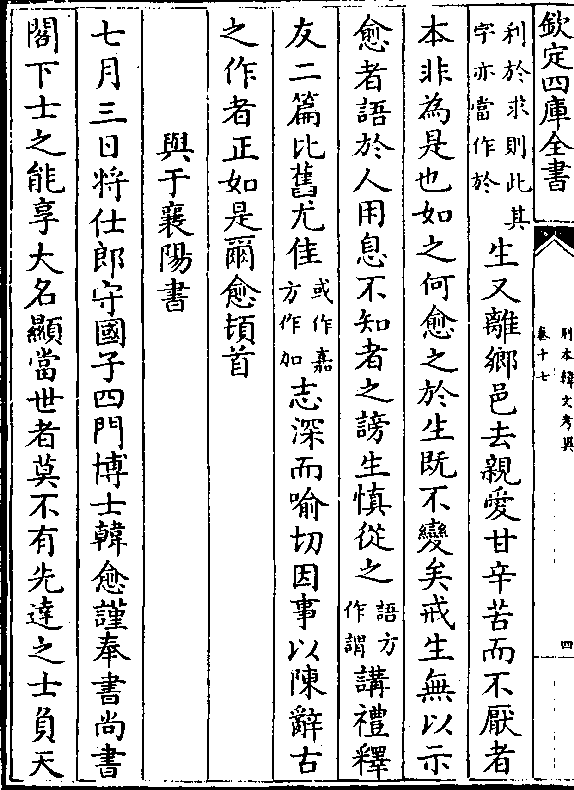 欽定四庫全書
別本韓文考異
卷十七
四
利於求則此其
字亦當作於
生又離鄉邑去親愛甘辛苦而不厭者
本非為是也如之何愈之於生既不變矣戒生無以示
愈者語於人用息不知者之謗生慎從之語方作謂講禮釋
友二篇比舊尤佳或作嘉方作加志深而喻切因事以陳辭古
之作者正如是爾愈頓首
與于襄陽書
七月三日將仕郎守國子四門博士韓愈謹奉書尚書
閣下士之能享大名顯當世者莫不有先達之士負天